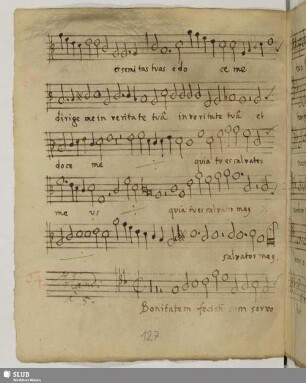 et semitas tuas edo ce me
dirige me in veritate tuâ in veritate tuâ et
doce me quia tu es salvator
me us quia tu es salvator meꝰ
salvator meꝰ
Bonitatem fecisti cum servo
127
SLUB
Wir führen Wissen.